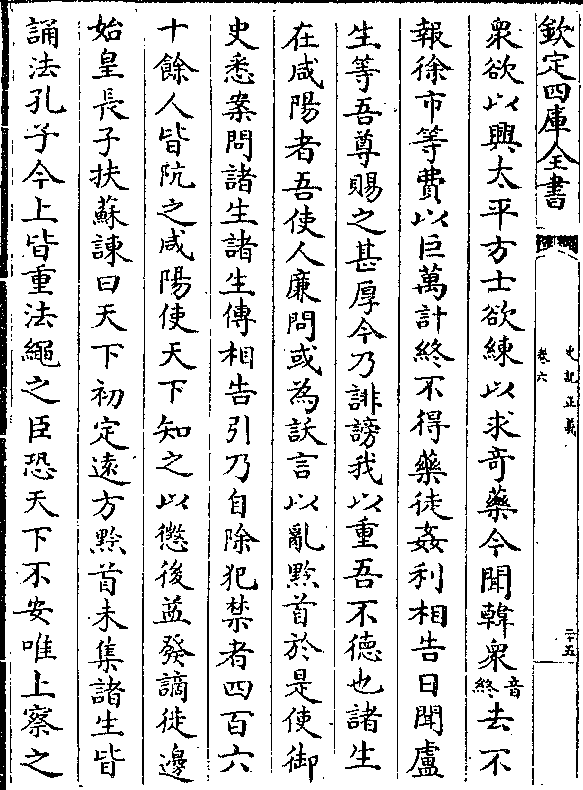 欽定四庫全書
史記正義
卷六
二十五
衆欲以興太平方士欲練以求奇藥今聞韓衆音終去不
報徐市等費以巨萬計終不得藥徒姦利相告日聞盧
生等吾尊賜之甚厚今乃誹謗我以重吾不徳也諸生
在咸陽者吾使人廉問或為訞言以亂黔首於是使御
史悉案問諸生諸生傳相告引乃自除犯禁者四百六
十餘人皆阬之咸陽使天下知之以懲後益發謫徙邊
始皇長子扶蘇諫曰天下初定逺方黔首未集諸生皆
誦法孔子今上皆重法繩之臣恐天下不安唯上察之